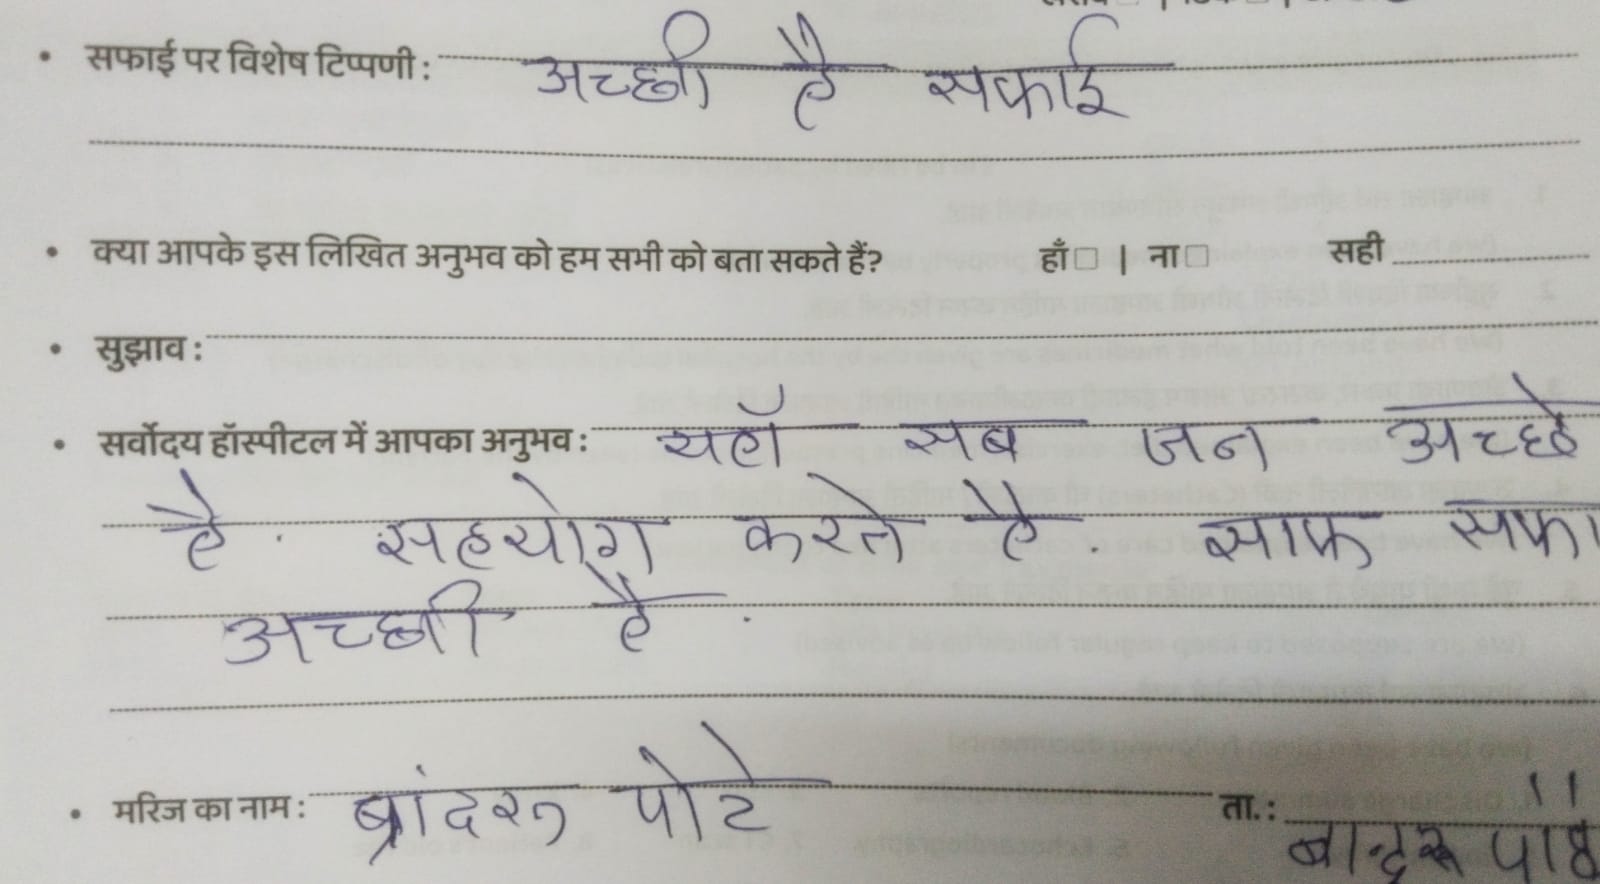 सफाई पर विशेष टिप्पणी : अच्छी है सफाई
क्या आपके इस लिखित अनुभव को हम सभी को बता सकते हैं? हाँ☐ | ना☐ सही
सुझाव :
सर्वोदय हॉस्पीटल में आपका अनुभव : यहाँ सब जन अच्छे
है. सहयोग करते है. साफ सफा
अच्छी है.
मरिज का नाम : पोटे ता.: